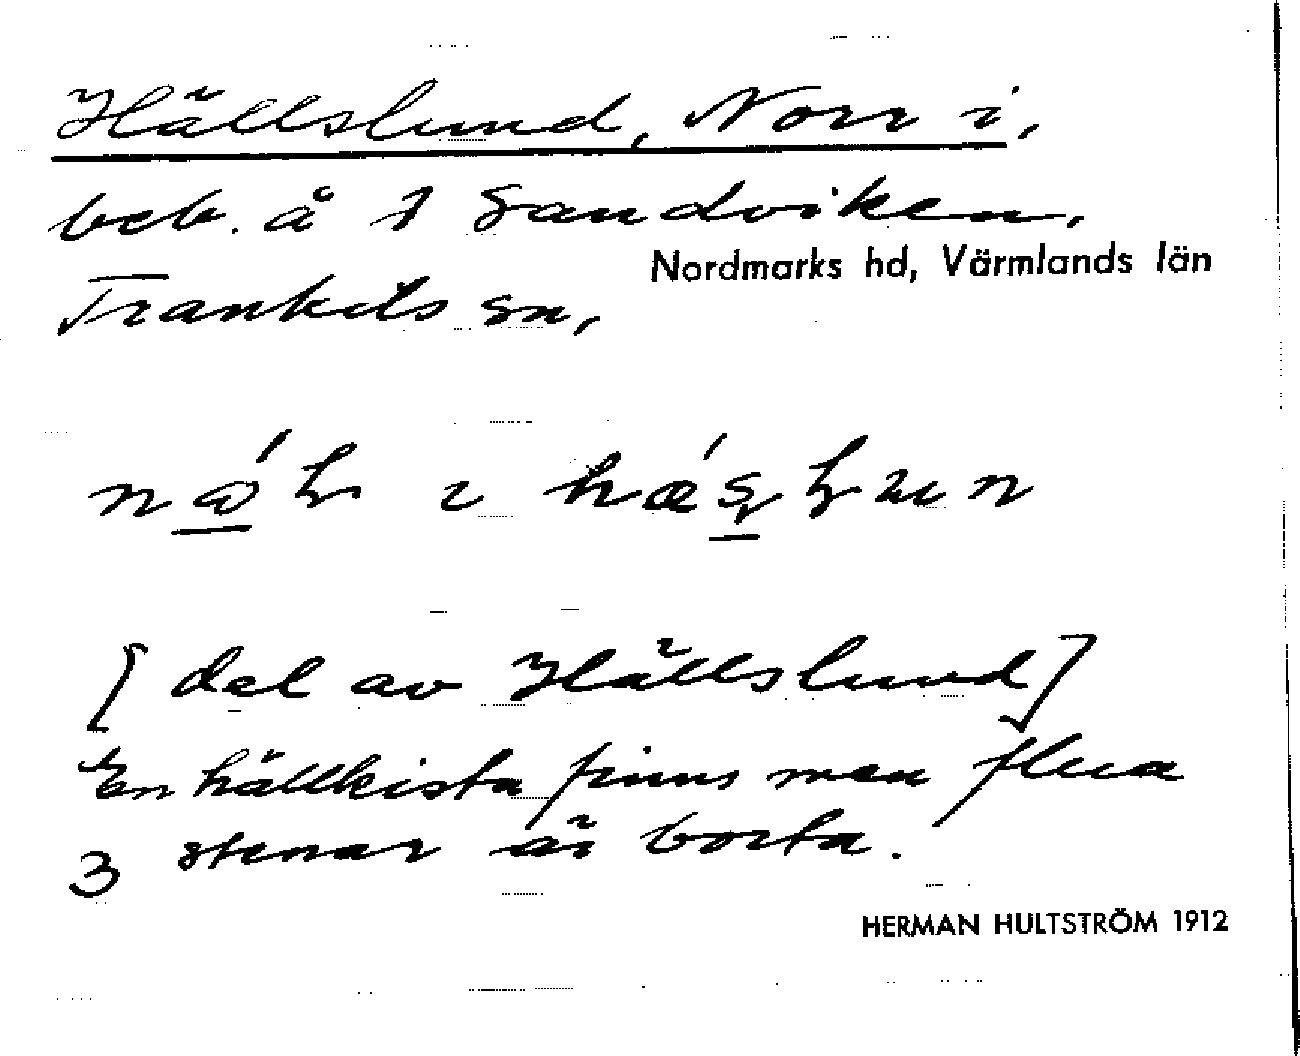 Hällslund, Norr i,
beb. å 1 Sandviken,
Nordmarks hd, Värmlands län
Trankils sn,
[del av Hällslund]
En hällkista finns men flera
3 stenar är borta.
HERMAN HULTSTRÖM 1912